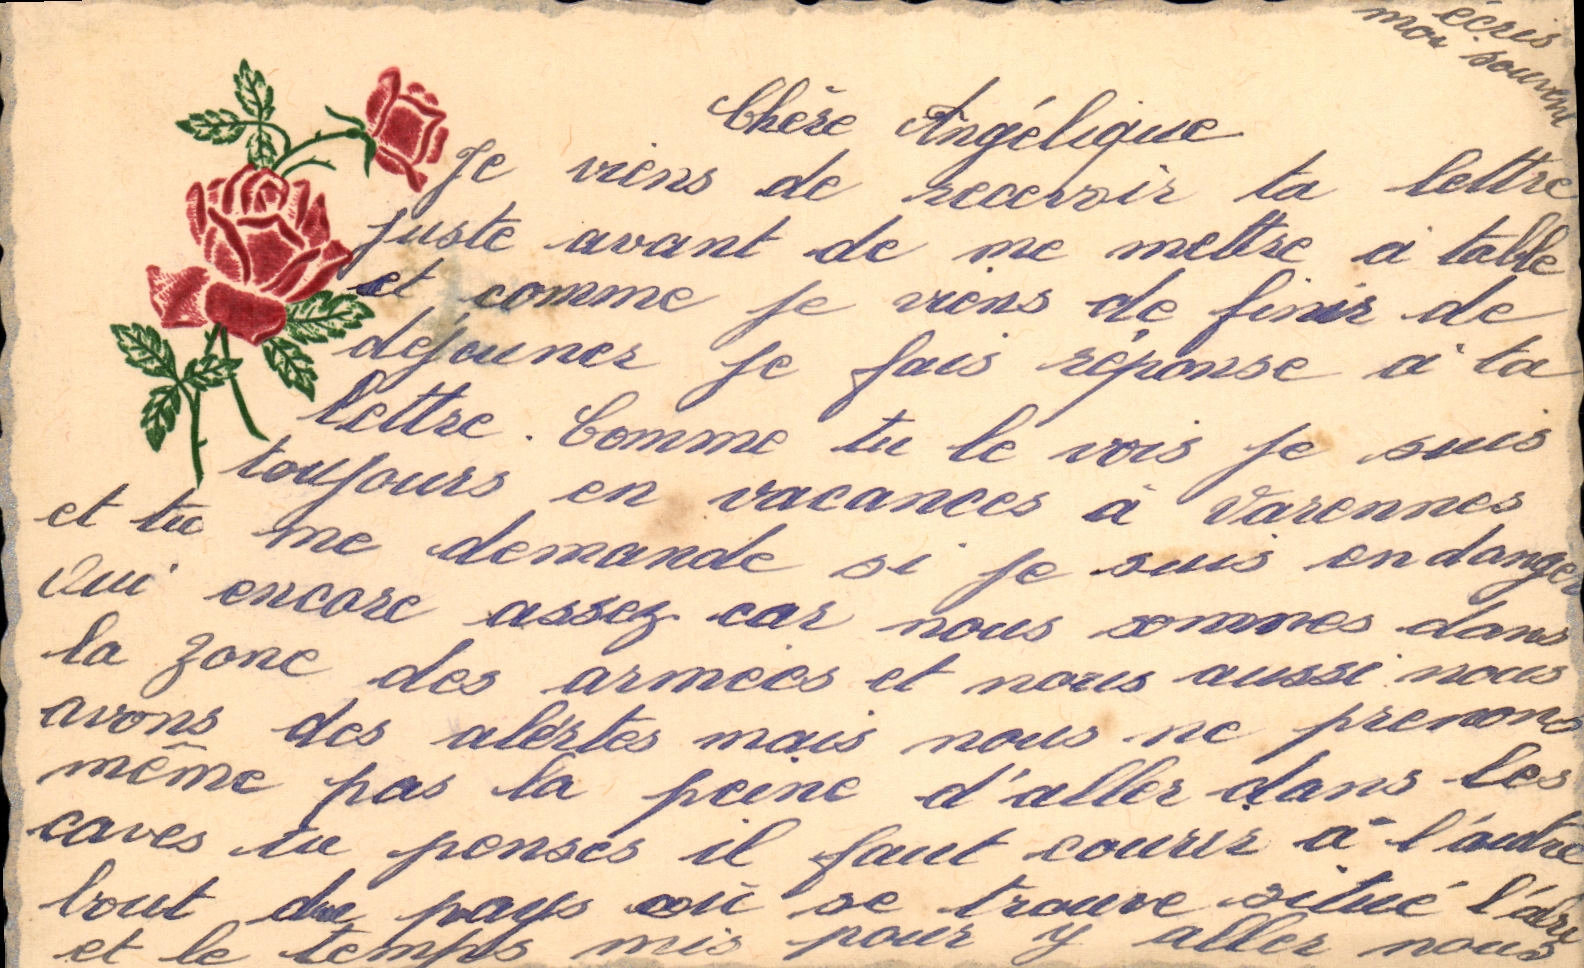 écris
moi souvent
Chère Angélique
Je viens de recevoir ta lettre
juste avant de me mettre a table
et comme je viens de finir de
déjeuner je fais réponse a ta
lettre. Comme tu le vois je suis
toujours en vacances à Varennes
et tu me demande si je suis en danger
Oui encore assez car nous sommes dans
la zone des armées et nous aussi nous
avons des alertes mais nous ne prenons
même pas la peine d'aller dans les
caves tu penses il faut courir à l'autre
bout du pays où se trouve situé l'abri
et le temps mis pour y aller nous